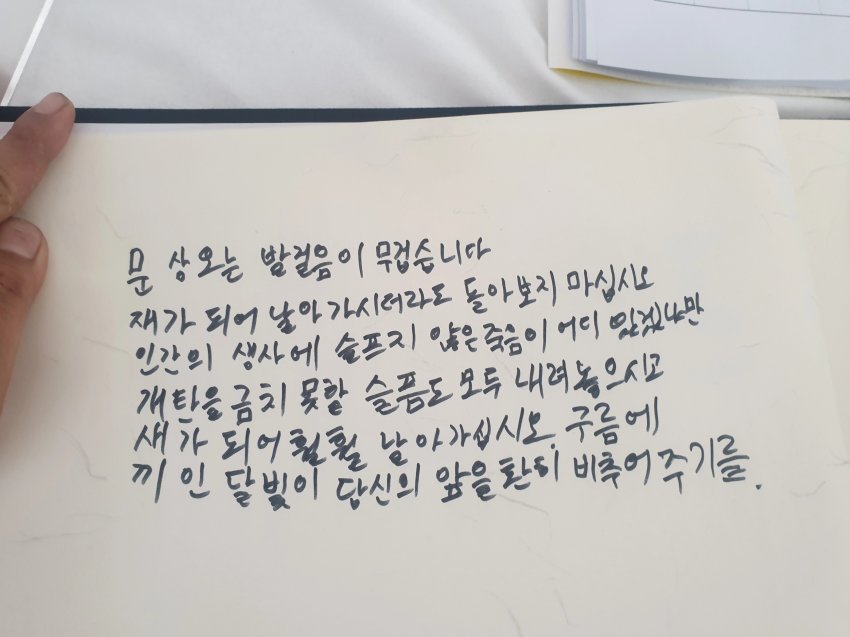 문상오는 발걸음이 무겁습니다
재가 되어 날아가시더라도 돌아보지 마십시오
인간의 생사에 슬프지 않은 죽음이 어디 있겠냐만
개탄을 금치 못할 슬픔도 모두 내려놓으시고
새가 되어 훨훨 날아가십시오. 구름에
끼인 달빛이 당신의 앞을 환히 비추어 주기를.